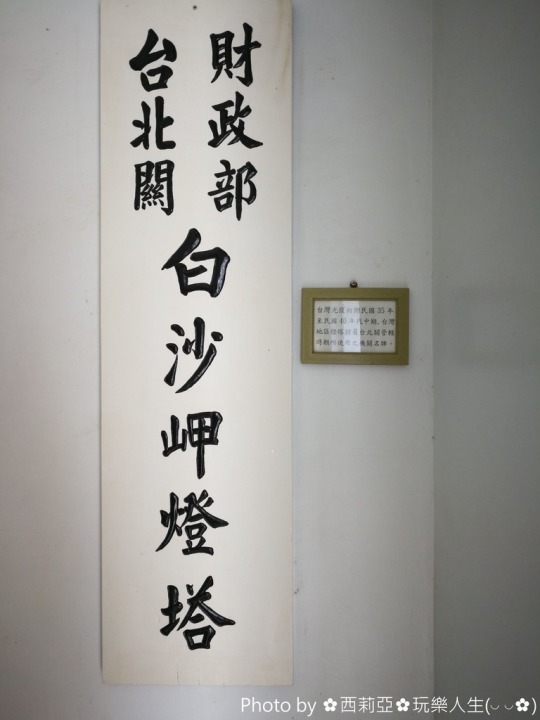 財政部
台北關
白沙岬燈塔
台灣光復初期民國35年
至民國40年代中期,台灣
地區燈塔隸屬台北關管轄
時期所使用之機關名牌。
Photo by ✿西莉亞✿玩樂人生(◡◡✿)